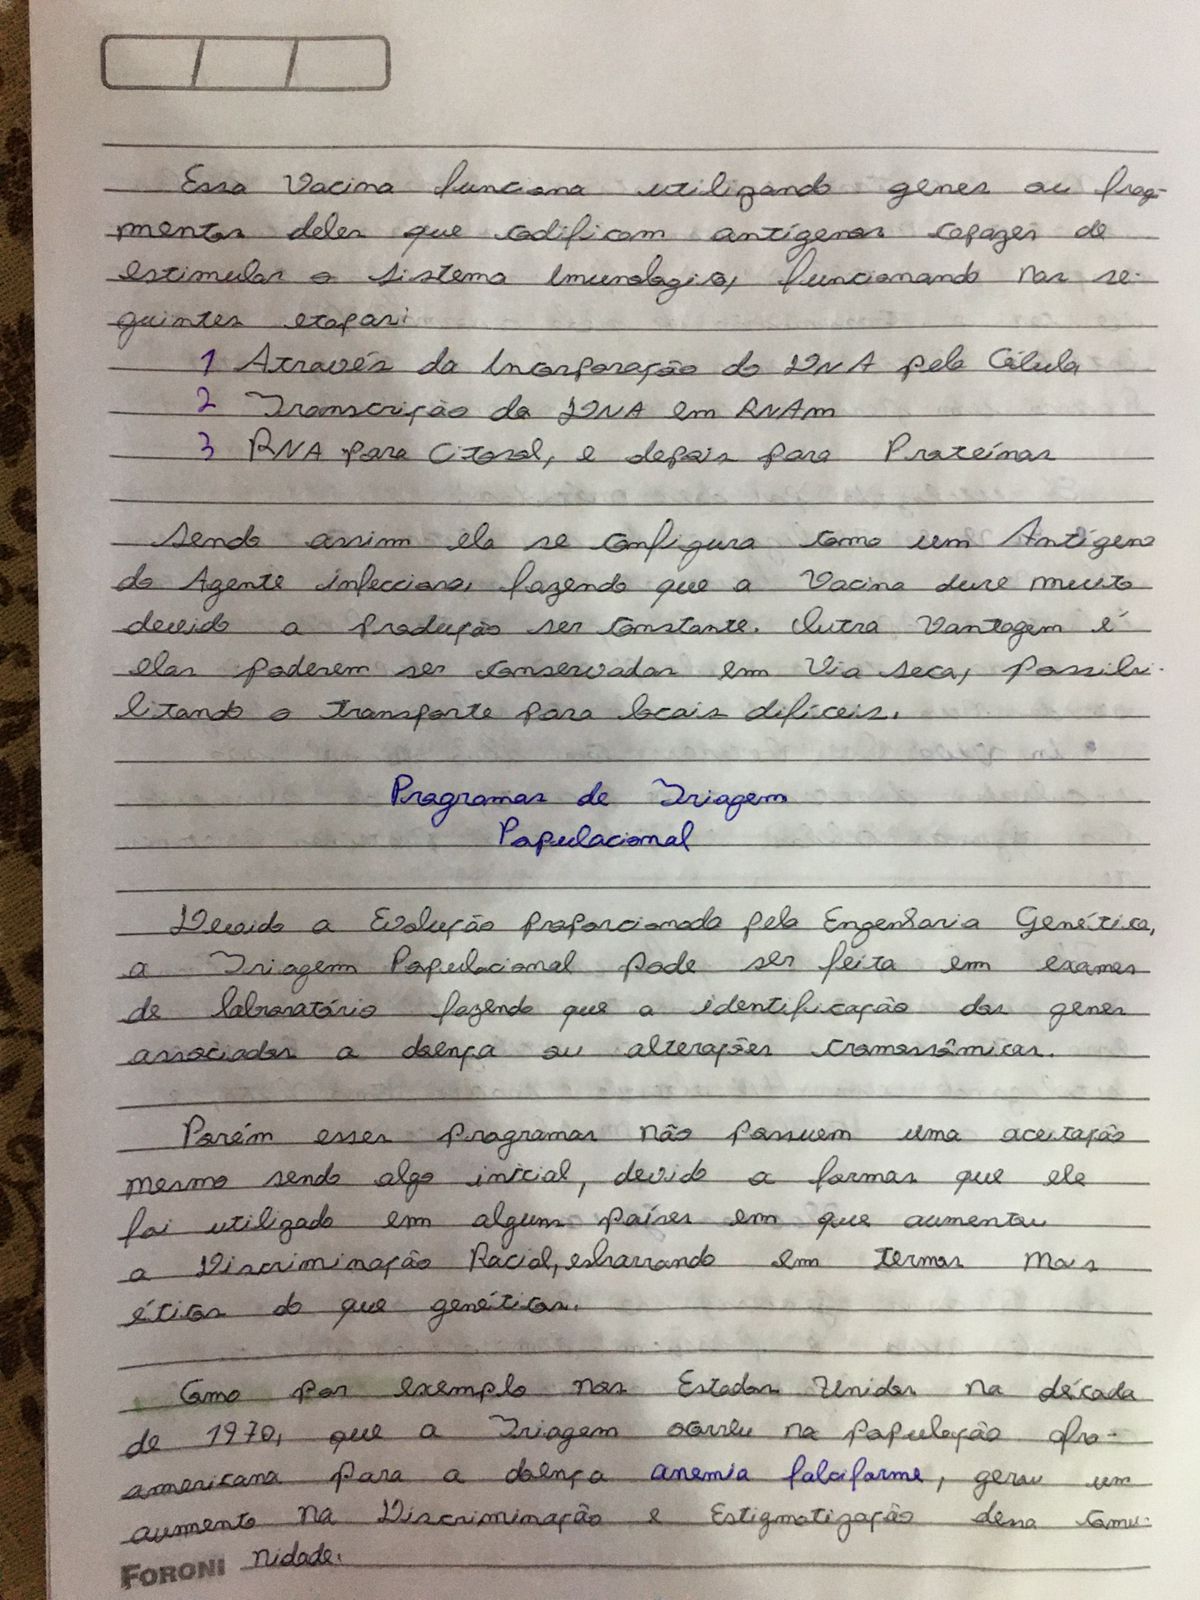 Essa Vacina funciona utilizando genes ou frag-
mentos deles que codificam antígenos capazes de
estimular o sistema imunologico, funcionando nas se-
guintes etapas:
1 Através da Incorporação do DNA pela Célula
2 Transcrição do DNA em RNAm
3 RNA para Citosol, e depois para Proteínas
Sendo assim ela se configura como um Antígeno
do Agente infeccioso, fazendo que a Vacina dure muito
devido a produção ser constante. Outra Vantagem é
elas poderem ser conservadas em Via seca, possibi-
litando o transporte para locais difíceis.
Programas de Triagem
Populacional
Devido a Evolução proporcionada pela Engenharia Genética,
a Triagem Populacional pode ser feita em exames
de laboratório fazendo que a identificação dos genes
associados a doença ou alterações cromossômicas.
Porém esses programas não possuem uma aceitação
mesmo sendo algo inicial, devido a formas que ele
foi utilizado em alguns países em que aumentou
a Discriminação Racial, esbarrando em termos mais
éticos do que genéticos.
Como por exemplo nos Estados Unidos na década
de 1970, que a Triagem ocorreu na população afro-
americana para a doença anemia falciforme, gerou um
aumento na Discriminação e Estigmatização dessa comu-
nidade.
FORONI